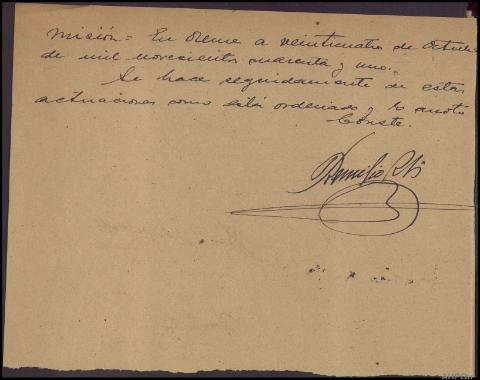 misión = En Orense a veinticuatro de Octubre
de mil novecientos cuarenta y uno.
Se hace seguidamente de estas
actuaciones como está ordenado y lo anoto
Conste.